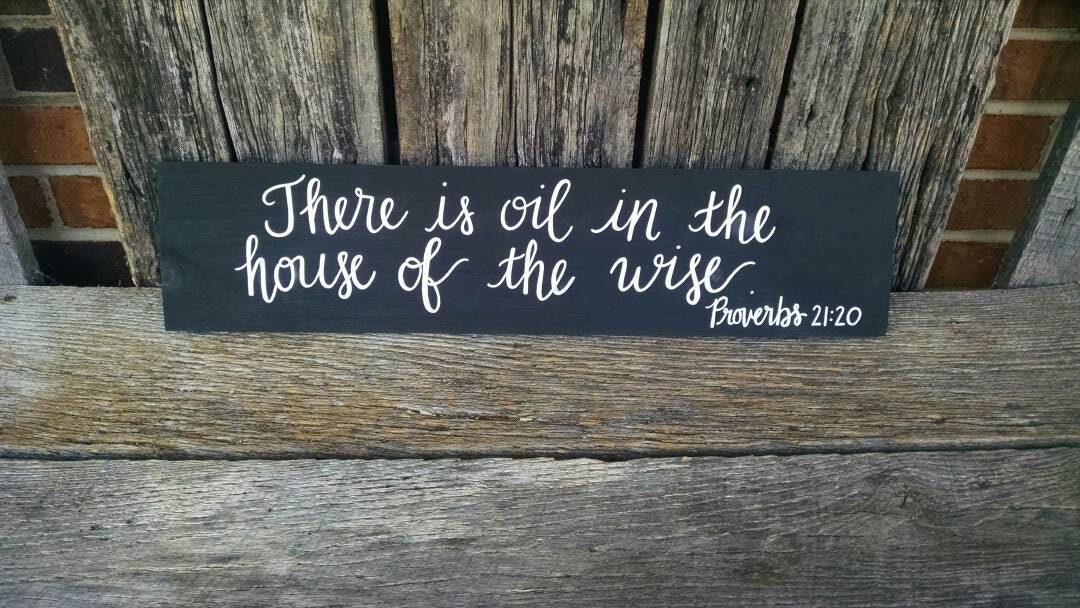 There is oil in the
house of the wise.
Proverbs 21:20